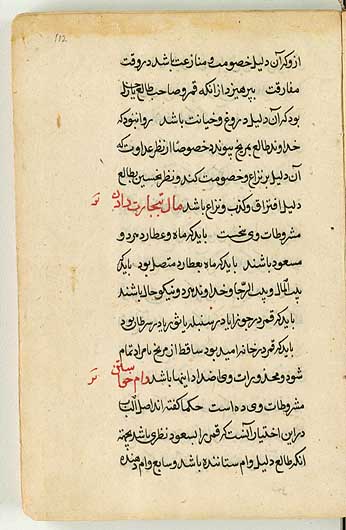 112
ازو کر آن دلیل خصومت و منازعت باشد در وقت
مفارقت بپرهیزد از آنکه قمر و صاحب طالع
بود کر آن دلیل دروغ و خیانت باشد روا نبود که
خداوند طالع بمریخ پیوندد خصوصا از نظر عداوت که
آن دلیل بر نزاع و خصومت کند و نظر نحسین بطالع
دلیل افتراق و کذب و نزاع باشد مال بتجارت دادن
مشروطات وی نخست باید که ماه و عطارد هر دو
مسعود باشند باید که ماه بعطارد متصل بود باید که
بیت المال و بیت الرجا و خداوند هر دو نیکو حال باشند
باید که قمر در جوزا یا در سنبله یا ثور یا در سرطان بود
باید که قمر در خانه امید بود ساقط از مریخ تا مراد تمام
شود و محذورات وی ضد اینها باشد وام خواستن
مشروطات وی ده است حکما گفته اند اصل الباب
در این اختیار آنست که قمر را بسعود نظری باشد بجهة
آنکه طالع دلیل وام ستاننده باشد و سابع وام دهنده